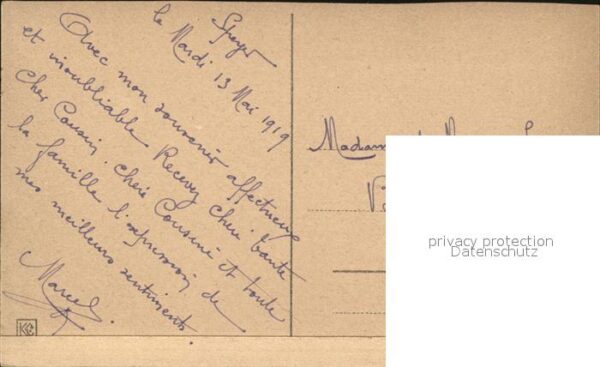 Speyer
le Mardi 13 Mai 1919
Avec mon souvenir affectueux
et inoubliable Recevez chère tante
Cher Cousin, chère Cousine et toute
la famille l'expression de
mes meilleurs sentiments.
Marcel.
Madame
privacy protection
Datenschutz